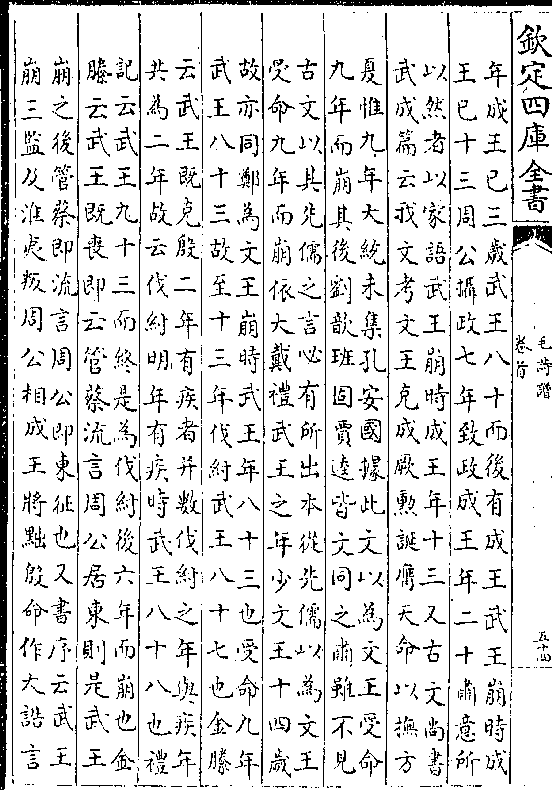 欽定四庫全書
毛詩譜
卷首
五十四
年成王已三歲武王八十而後有成王武王崩時成
王已十三周公攝政七年致政成王年二十肅意所
以然者以家語武王崩時成王年十三又古文尚書
武成篇云我文考文王克成厥勲誕膺天命以撫方
夏惟九年大統未集孔安國據此文以為文王受命
九年而崩其後劉歆班固賈逵皆文同之肅雖不見
古文以其先儒之言必有所出本從先儒以為文王
受命九年而崩依大戴禮武王之年少文王十四歲
故亦同鄭為文王崩時武王年八十三也受命九年
武王八十三故至十三年伐紂武王八十七也金縢
云武王既克殷二年有疾者并數伐紂之年與疾年
共為二年故云伐紂明年有疾時武王八十八也禮
記云武王九十三而終是為伐紂後六年而崩也金
縢云武王既喪即云管蔡流言周公居東則是武王
崩之後管蔡即流言周公即東征也又書序云武王
崩三監及淮夷叛周公相成王將黜殷命作大誥言